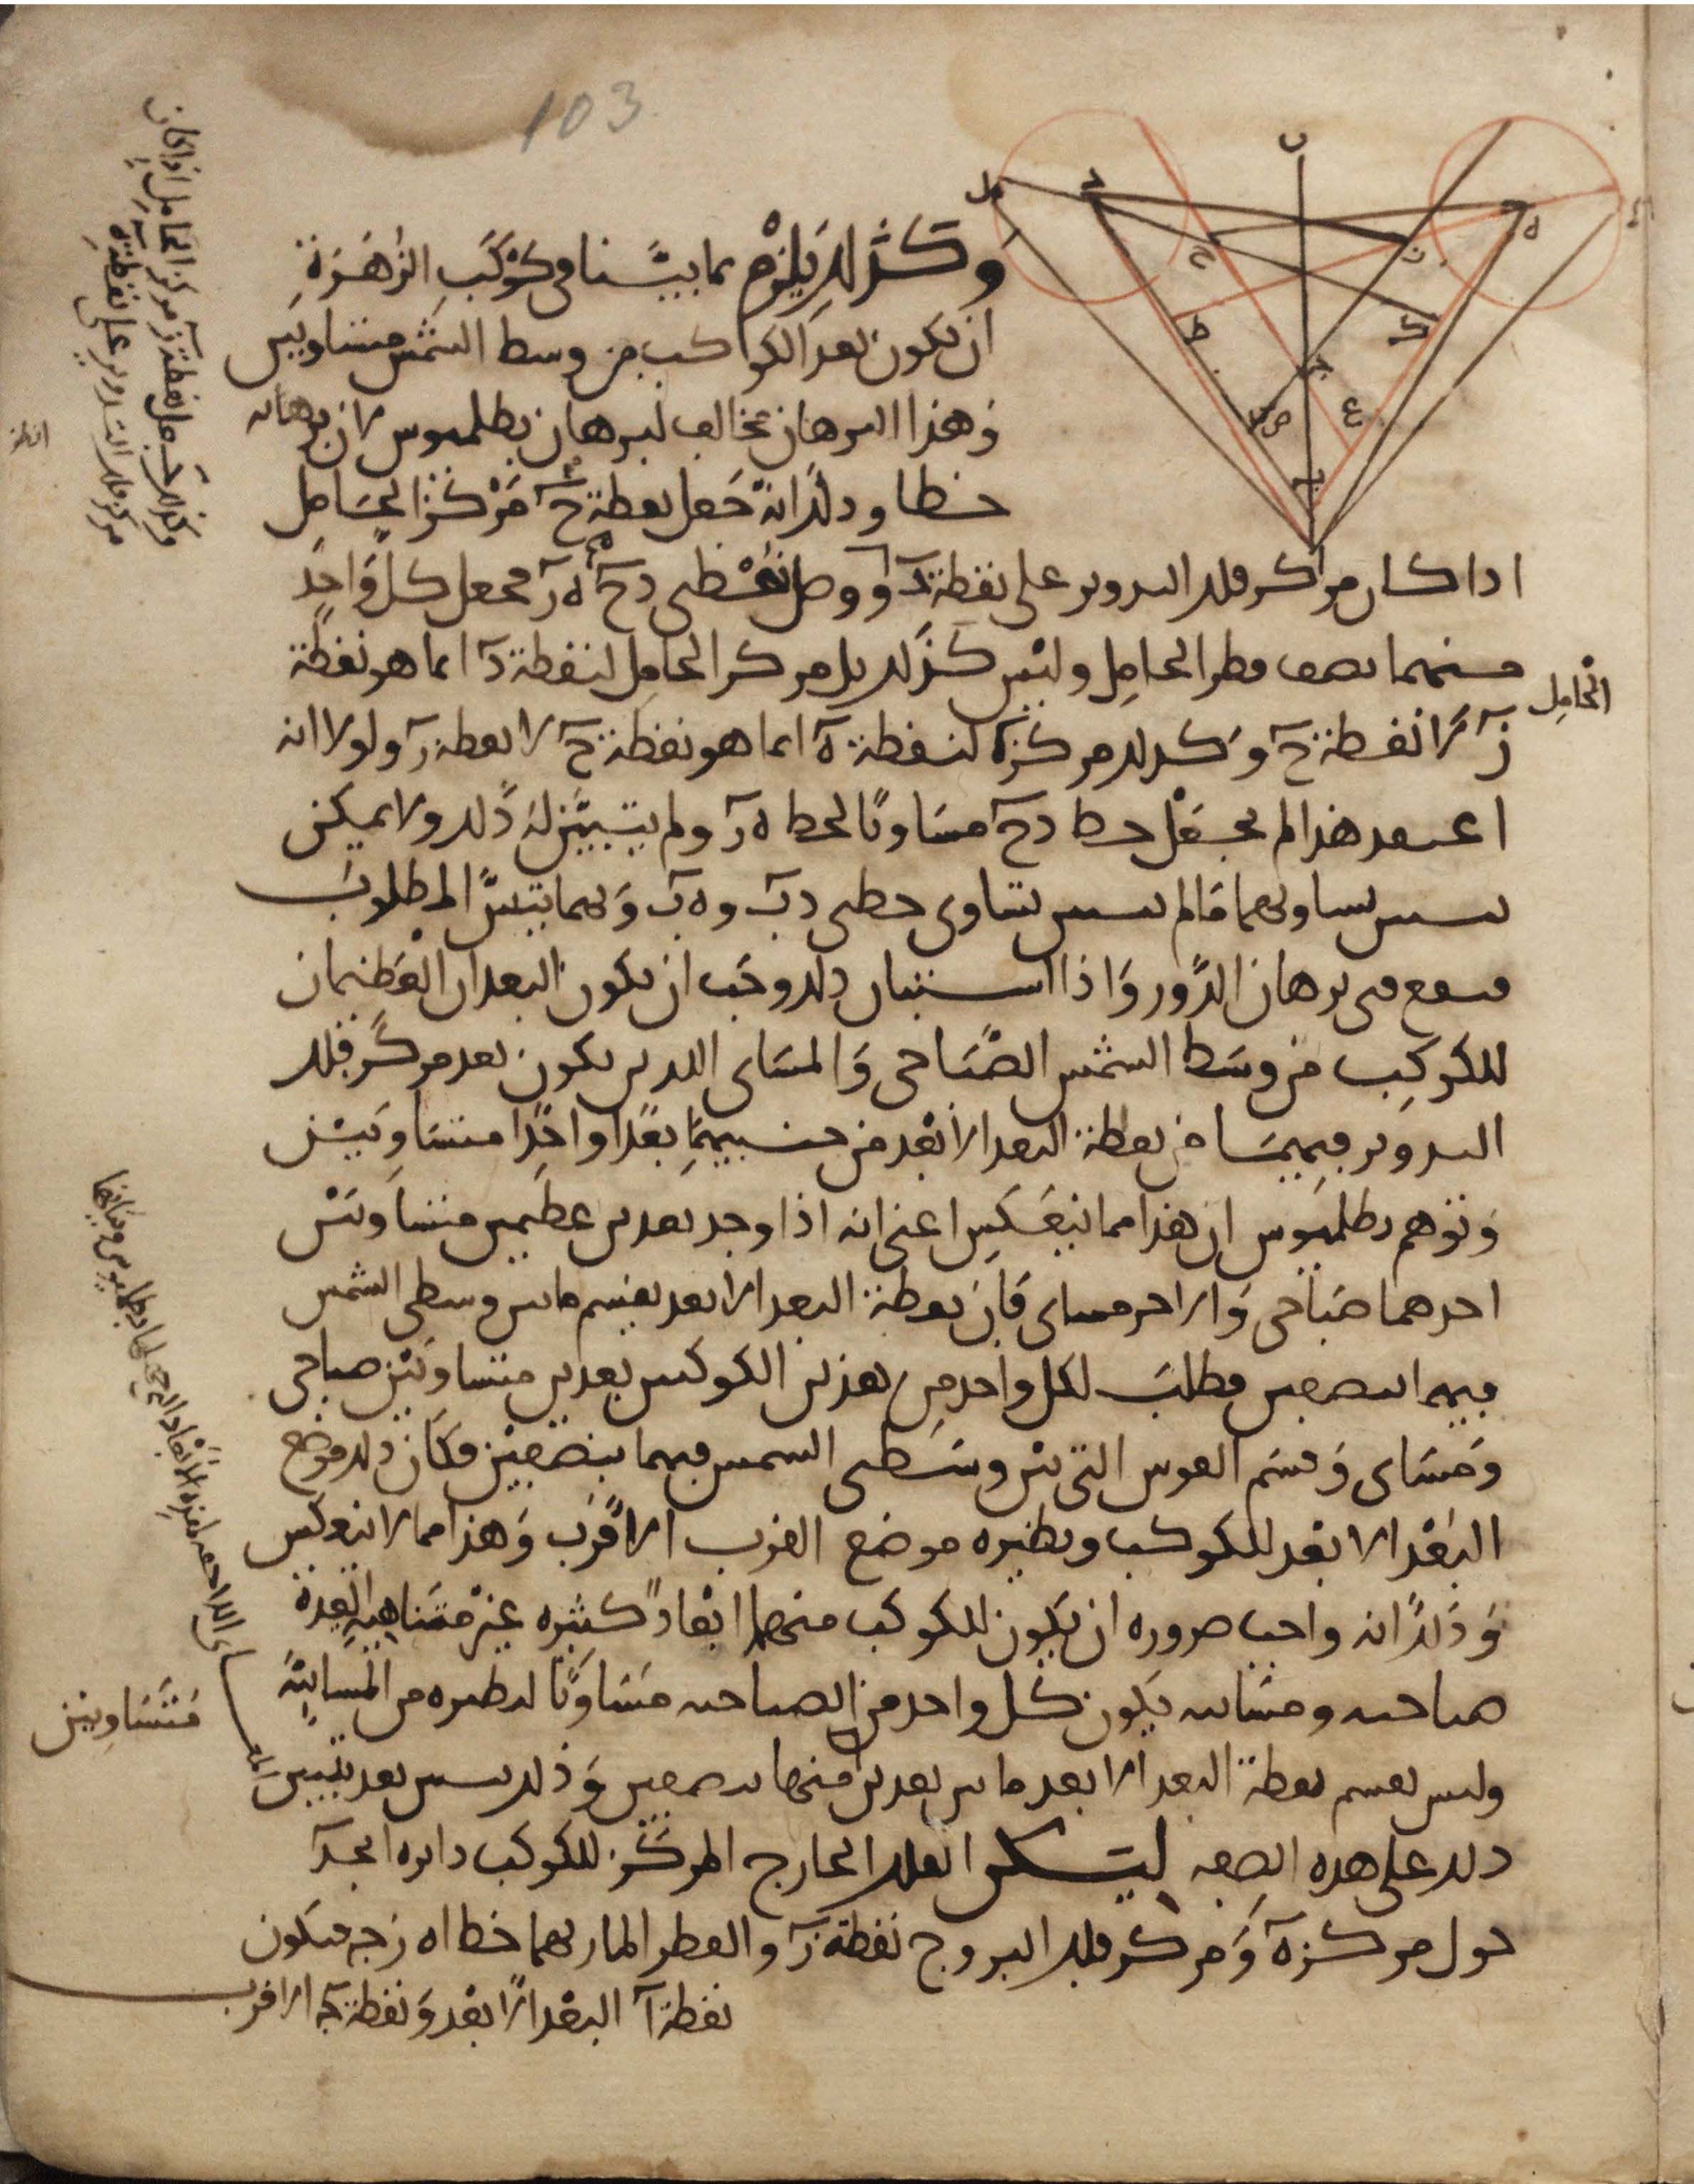 103
وكذلك يلزم مما بينا في كوكب الزهرة
ان يكون بعد الكواكب من وسط الشمس متساويين
وهذا البرهان مخالف لبرهان بطلميوس لان برهانه
خطا وذلك انه جعل نقطة ح مركز الحامل
اذا كان مركز فلك التدوير على نقطة د ووصل خطى دح هز فجعل كل واحد
منهما نصف قطر الحامل وليس كذلك بل مركز الحامل لنقطة د انما هو نقطة
ز لا نقطة ح وكذلك مركزه لنقطة ه انما هو نقطة ح لا نقطة ز ولولا انه
اعتقد هذا لم يجعل خط دح مساويا لخط هز ولم يتبين له ذلك ولا يمكن
تبين تساويهما ما لم يتبين تساوى خطى دب و هب وبهما يتبين المطلوب
فيقع في برهان الدور واذا استبان ذلك وجب ان يكون البعدان العظيمان
للكوكب من وسط الشمس الصباحى والمساى اللذين يكون بعد مركز فلك
التدوير فيهما من نقطة البعد الابعد من جنبيهما بعدا واحدا متساويين
وتوهم بطلميوس ان هذا مما ينعكس اعنى انه اذا وجد بعدين عظيمين متساويين
احدهما صباحى والاخر مساى فان نقطة البعد الابعد يقسم ما بين وسطى الشمس
فيهما بنصفين فطلب لكل واحد من هذين الكوكبين بعدين متساويين صباحى
ومساى وقسم القوس التى بين وسطى الشمس فيهما بنصفين فكان ذلك موضع
البعد الابعد للكوكب ونظيره موضع القرب الاقرب وهذا مما لا ينعكس
وذلك انه واجب ضروره ان يكون للكوكب منهما ابعاد كثيره غير متناهية العدة
صباحيه ومسائيه يكون كل واحد من الصباحيه مساويا لنظيره من المسائية
وليس يقسم نقطة البعد الابعد ما بين بعدين منها بنصفين وذلك يتبين بعد تبيين
ذلك على هذه الصفه ليكن الفلك الخارج المركز للكوكب دايره ابجد
حول مركز ه ومركز فلك البروج نقطة ز والقطر المار بهما خط اه زج فتكون
نقطة ا البعد الابعد ونقطة ج الاقرب
الحامل
متساويين
وكذلك جعل نقطة ز مركز الحامل اذا كان
مركز فلك التدوير على نقطة ه